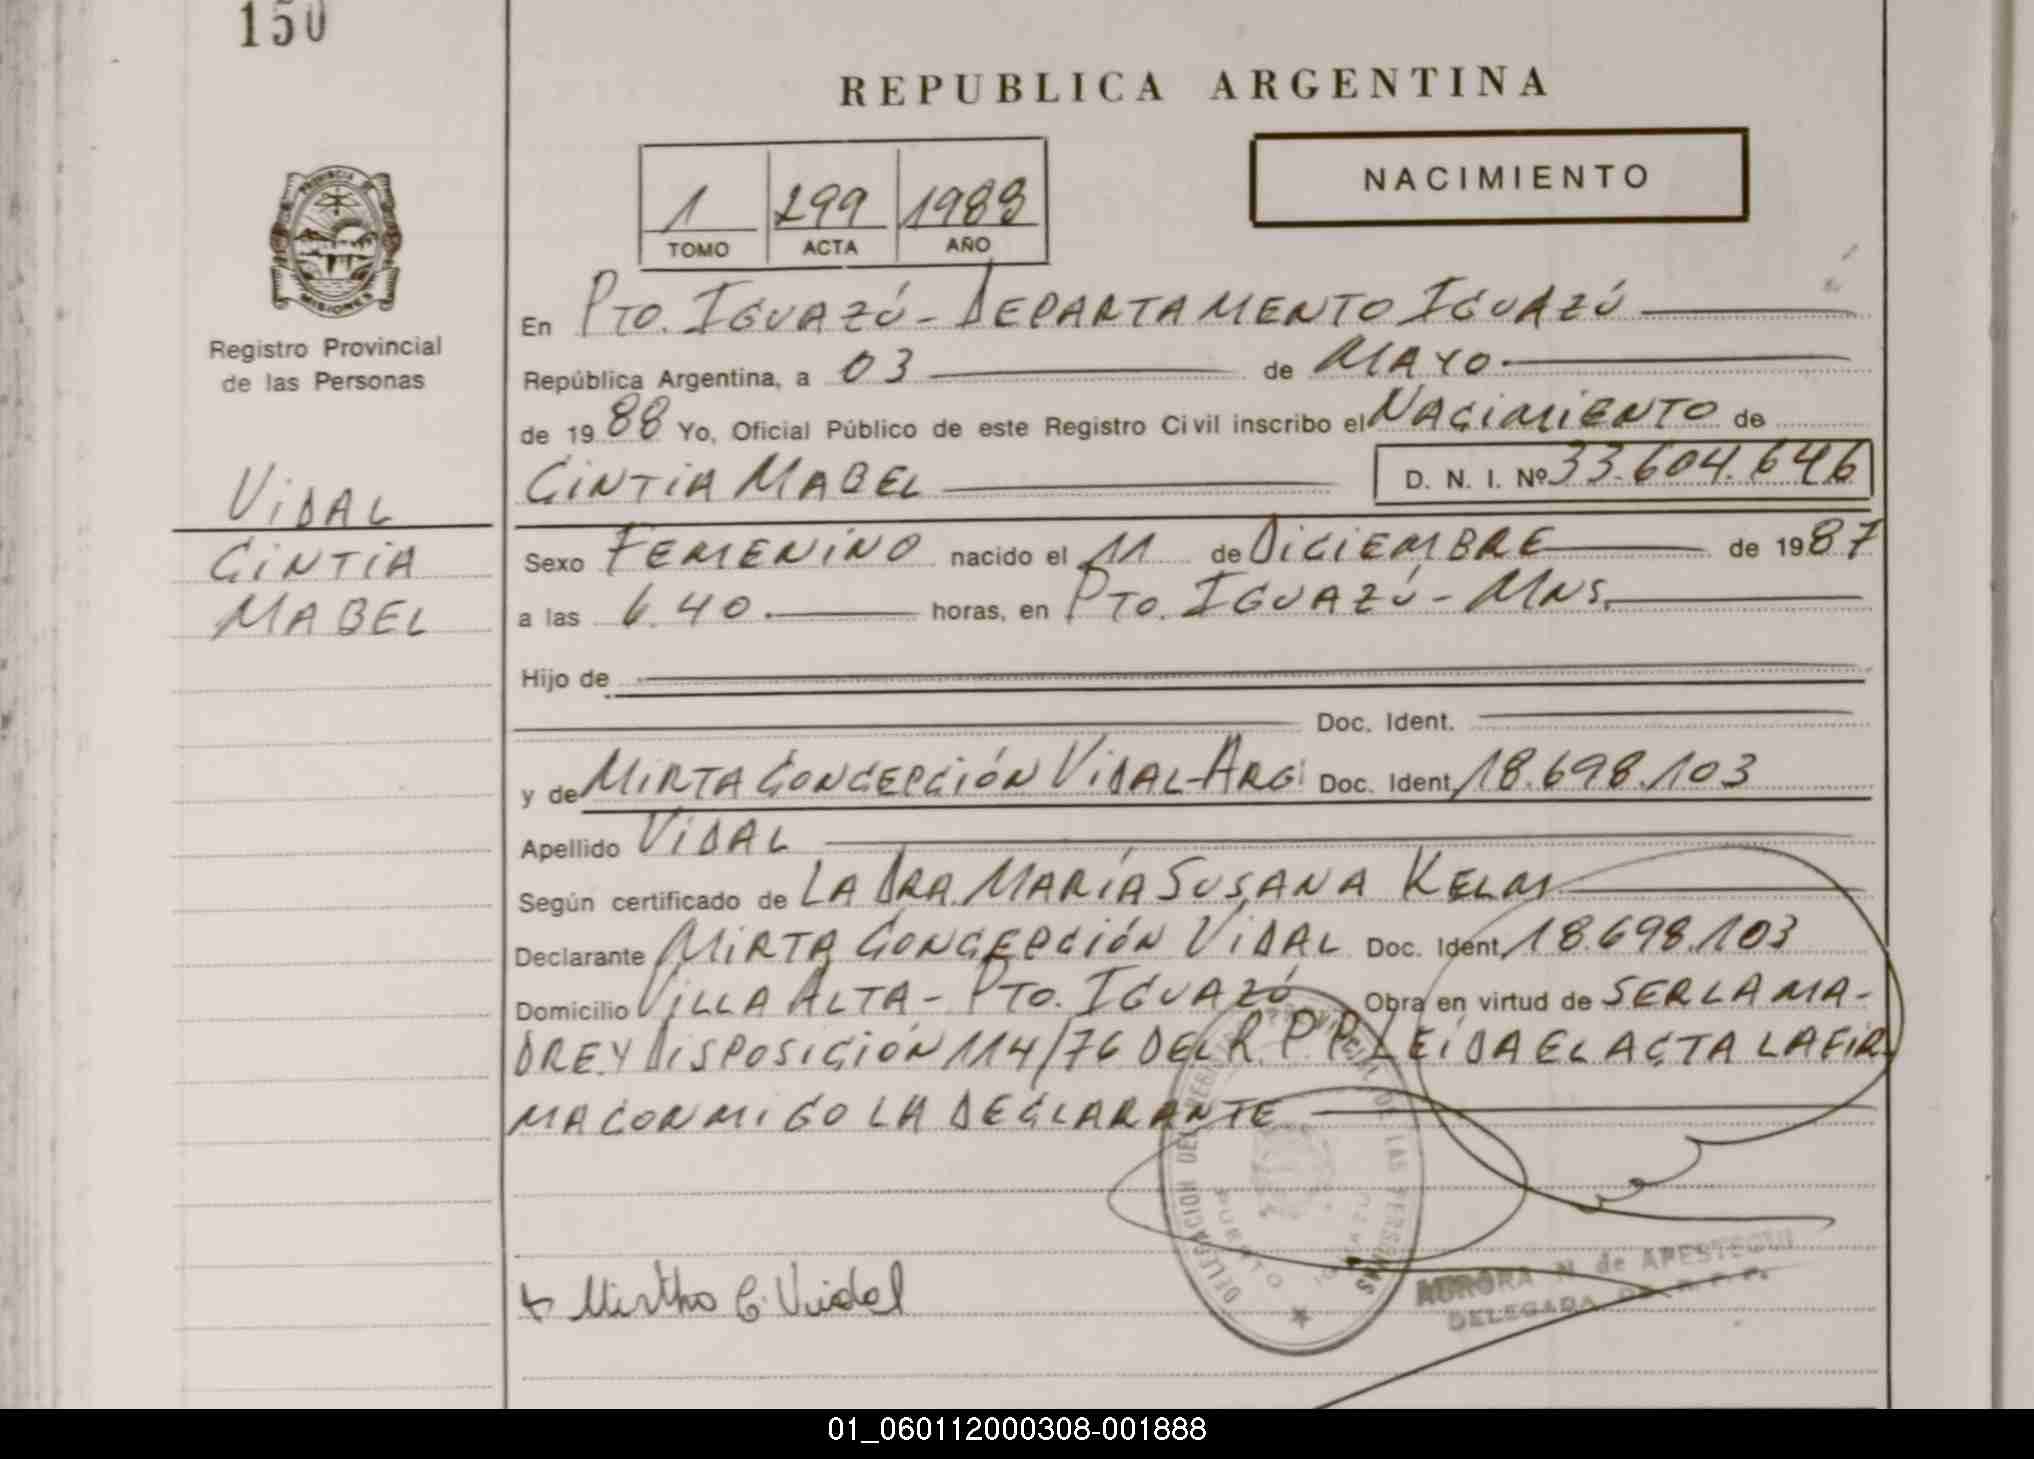 150
REPUBLICA ARGENTINA
NACIMIENTO
1 299 1988
TOMO ACTA AÑO
PROVINCIA DE
MISIONES
Registro Provincial
de las Personas
En PTO. IGUAZÚ - DEPARTAMENTO IGUAZÚ
República Argentina, a 03 de MAYO.
de 1988 Yo, Oficial Público de este Registro Civil inscribo el NACIMIENTO de
CINTIA MABEL D. N. I. Nº 33.604.646
VIDAL
CINTIA
MABEL
Sexo FEMENINO nacido el 11 de DICIEMBRE de 1987
a las 6.40. horas, en PTO. IGUAZÚ - MNS.
Hijo de
Doc. Ident.
y de MIRTA CONCEPCIÓN VIDAL-ARG. Doc. Ident. 18.698.103
Apellido VIDAL
Según certificado de LA DRA. MARÍA SUSANA
Declarante MIRTA CONCEPCIÓN VIDAL Doc. Ident. 18.698.103
Domicilio VILLA ALTA - PTO. IGUAZÚ Obra en virtud de SER LA MA-
DRE.Y DISPOSICIÓN 114/76 DEL R.P.P. LEÍDA EL ACTA LA FIR
MA CONMIGO LA DECLARANTE
DELEGACION DEL REGISTRO PROVINCIAL DE LAS PERSONAS
PUERTO IGUAZU
Mirtha C. Vidal
AURORA N. de APESTEGUI
DELEGADA DE R. P. P.
01_060112000308-001888